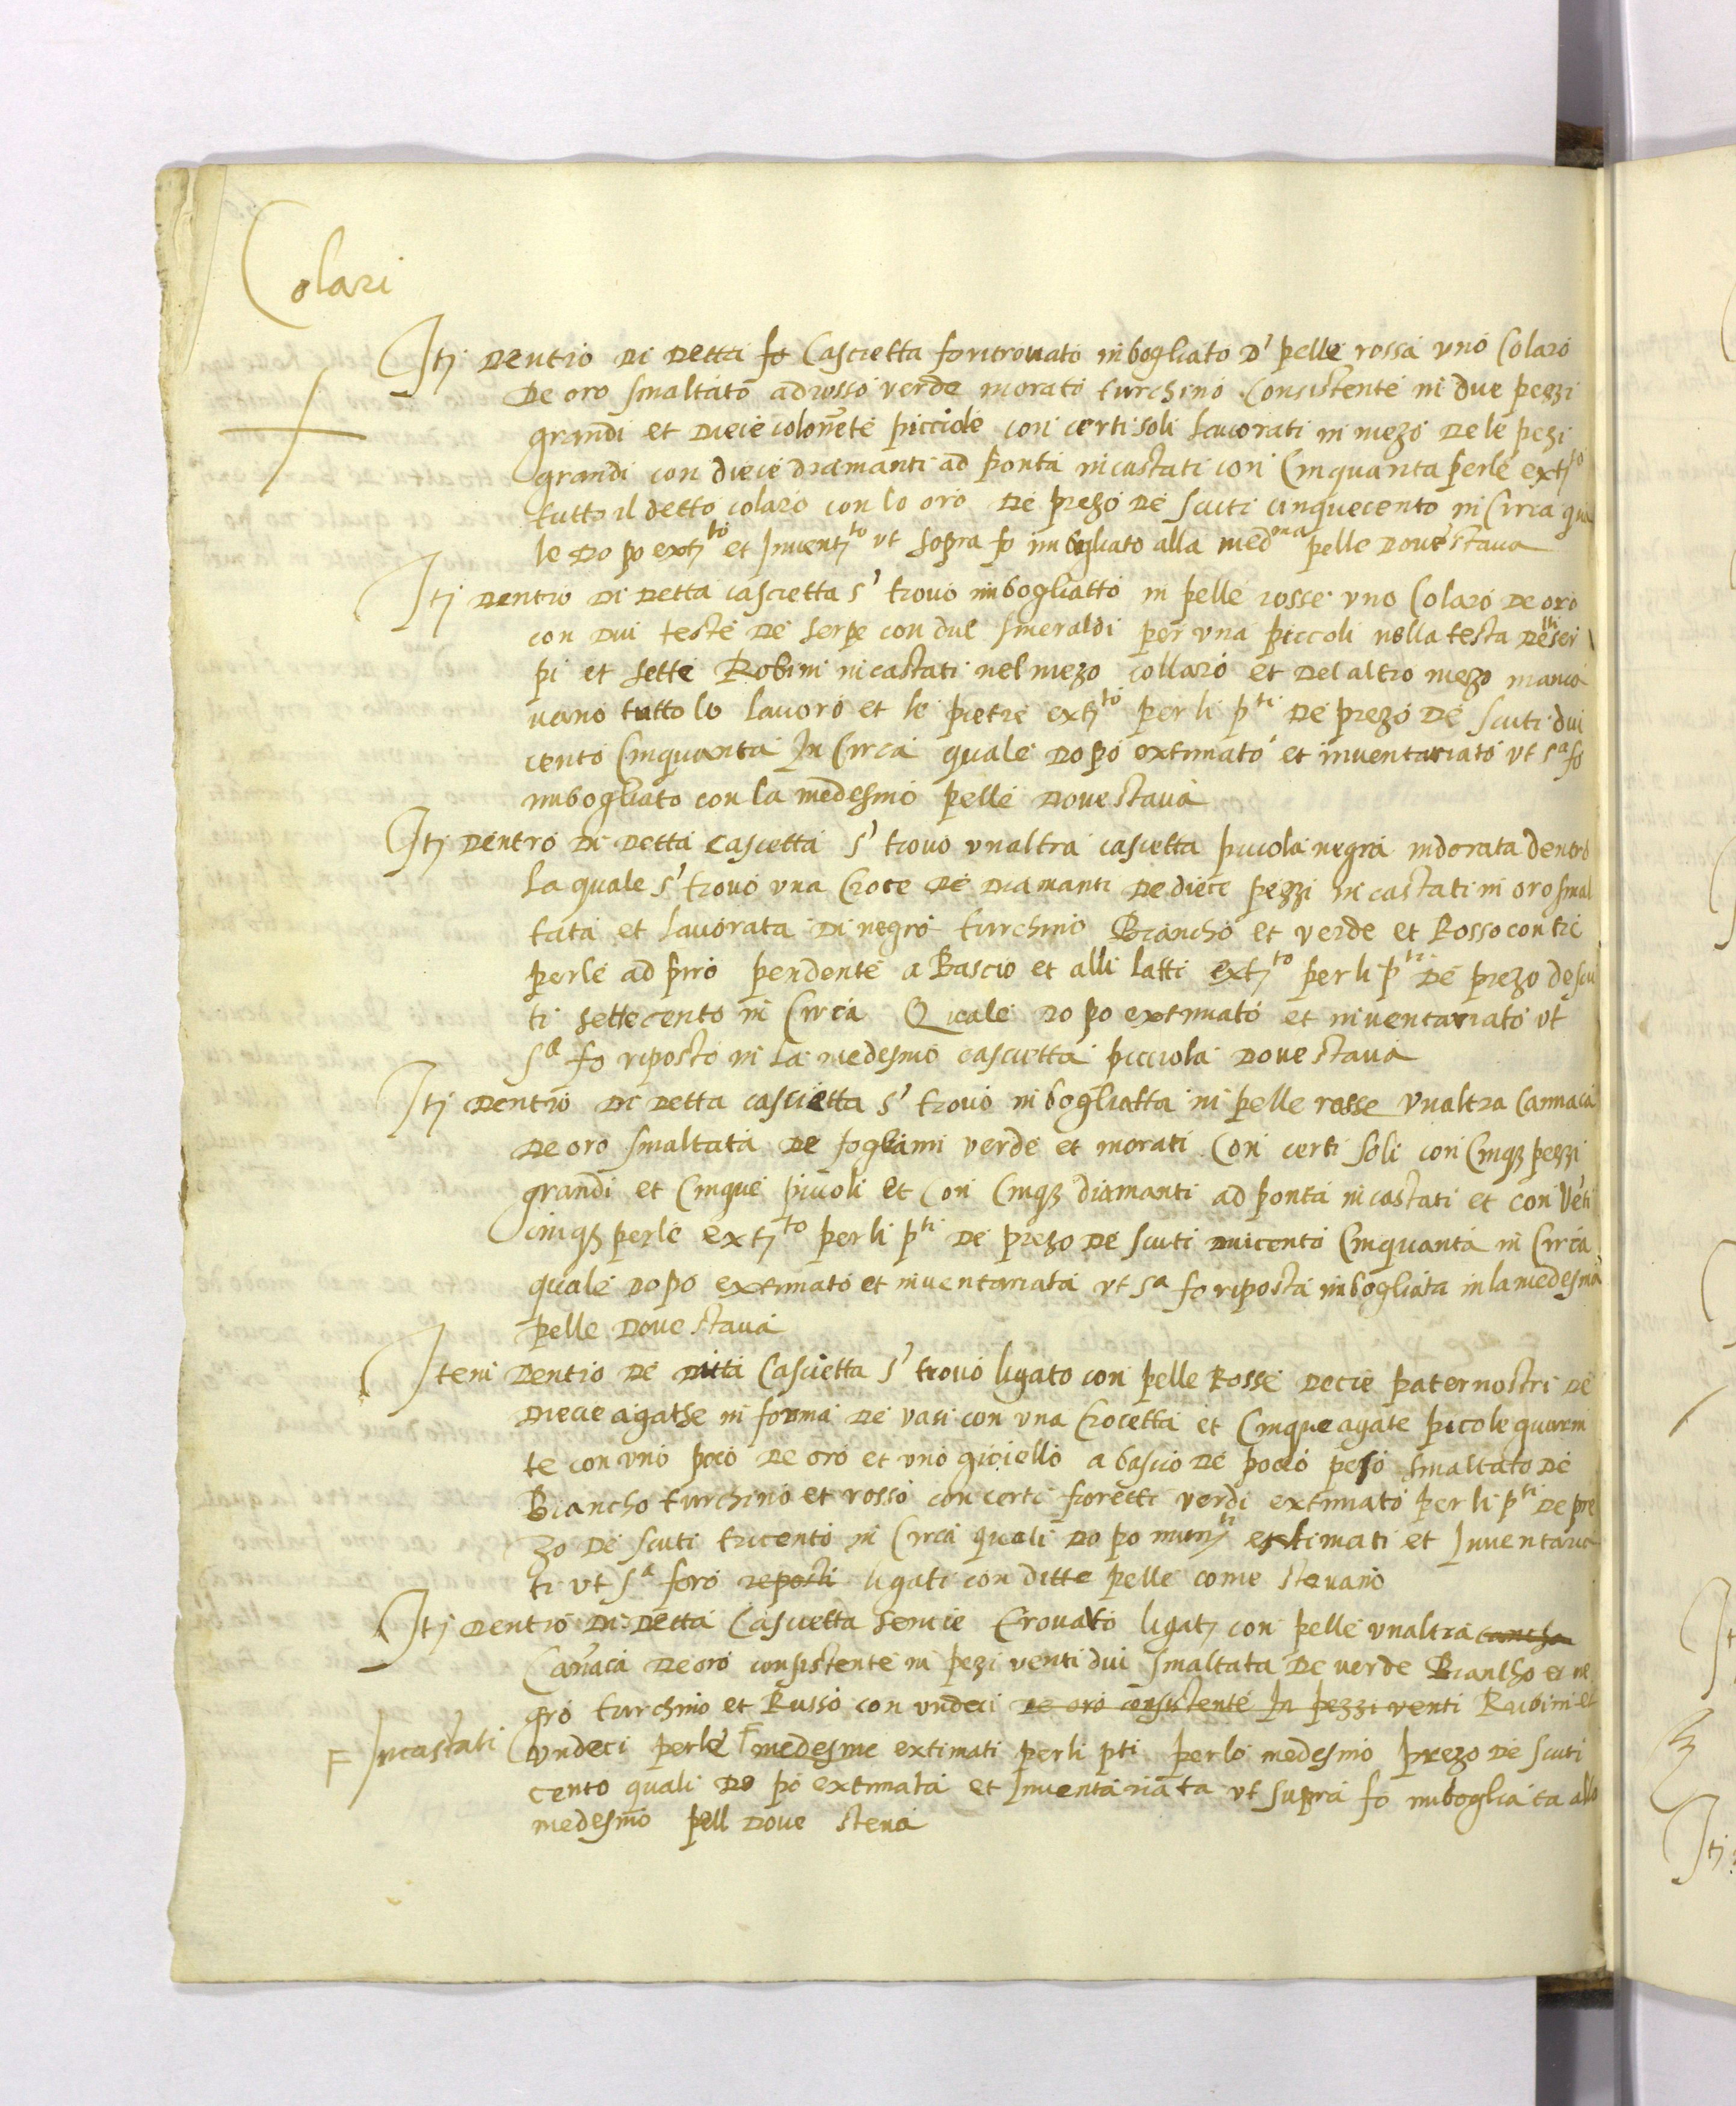 Colari
Itj dentro di detta fo Cascietta fo ritrovato inbogliato d' pelle rossa uno Colaro
de oro smaltato ad rosso verde morato turchino Consistente in due pezzi
grandi et diece colonnete picciole con certi soli lavorati in mezo dele pezi
grandi con diece diamanti ad ponta incastati con Cinquanta perle extj.to
tutto il detto colaro con lo oro de prezo de scuti cinquecento in Circa qua
le dopo extj.to et Inventj.to ut sopra fo imbogliato alla med.ma pelle dove stava
Itj dentro di detta cascietta s' trovo imbogliatto in pelle rosse uno Colaro de oro
con dui teste de serpe con due smeraldi per una piccoli nella testa de li ser
pi et sette Robini incastati nel mezo collaro et del altro mezo manca
vano tutto lo lavoro et le pietre extj.to per li p.ti de prezo de scuti dui
cento Cinquanta In Circa quale dopo extimato et inventariato ut s.a fo
imbogliato con la medesmo pelle dove stava
Itj dentro di detta cascietta s' trovo unaltra cascietta piccola negra indorata
la quale s' trovo una Croce de diamanti de diece pezzi incastati in oro smal
tata et lavorata di negro turchino Biancho et verde et Rosso con tre
perle ad piro pendente a Bascio et alli latti extj.to per li p.ti de prezo de scu
ti settecento in Circa Quale dopo extimato et inventariato ut
s.a fo riposto in la medesmo cascietta picciola dove stava
Itj dentro di detta cascietta s' trovo inbogliatta in pelle rosse unaltra Cannaca
de oro smaltata de fogliami verde et morati Con certi soli con Cinq3 pezzi
grandi et Cinque piccoli et Con Cinq3 diamanti ad ponta incastati et con Venti
cinq3 perle extj.to per li p.ti de prezo de scuti duicento Cinquanta in Circa
quale dopo extimato et inventariata ut s.a fo riposta inbogliata in la medesma
pelle dove stava
Item dentro de ditta Cascietta s' trovo ligato con pelle Rosse decie paternostri de
diecie agathe in forma de vasi con una Crocetta et Cinque agate picole
te con uno poco de oro et uno gioiello a bascio de poco peso smaltato de
Biancho turchino et rosso con certi fioretti verdi extimato per li p.ti de pre
zo de scuti trecento in Circa quali dopo extimati et Inventaria
ti ut s.a foro reposti ligati con ditte pelle come stevano
Itj dentro di detta Cascietta trovato ligatj con pelle unaltra
Canaca de oro consistente in pezi venti dui smaltata de verde Biancho et ne
gro turchino et Russo con undeci de oro consistente In pezzi venti Rubini et
F Incastati
undeci perle F medesme extimati per li pti per lo medesmo prezo de scuti
cento quali dopo extimata et Inventariata ut supra fo imbogliata allo
medesmo pell dove steva